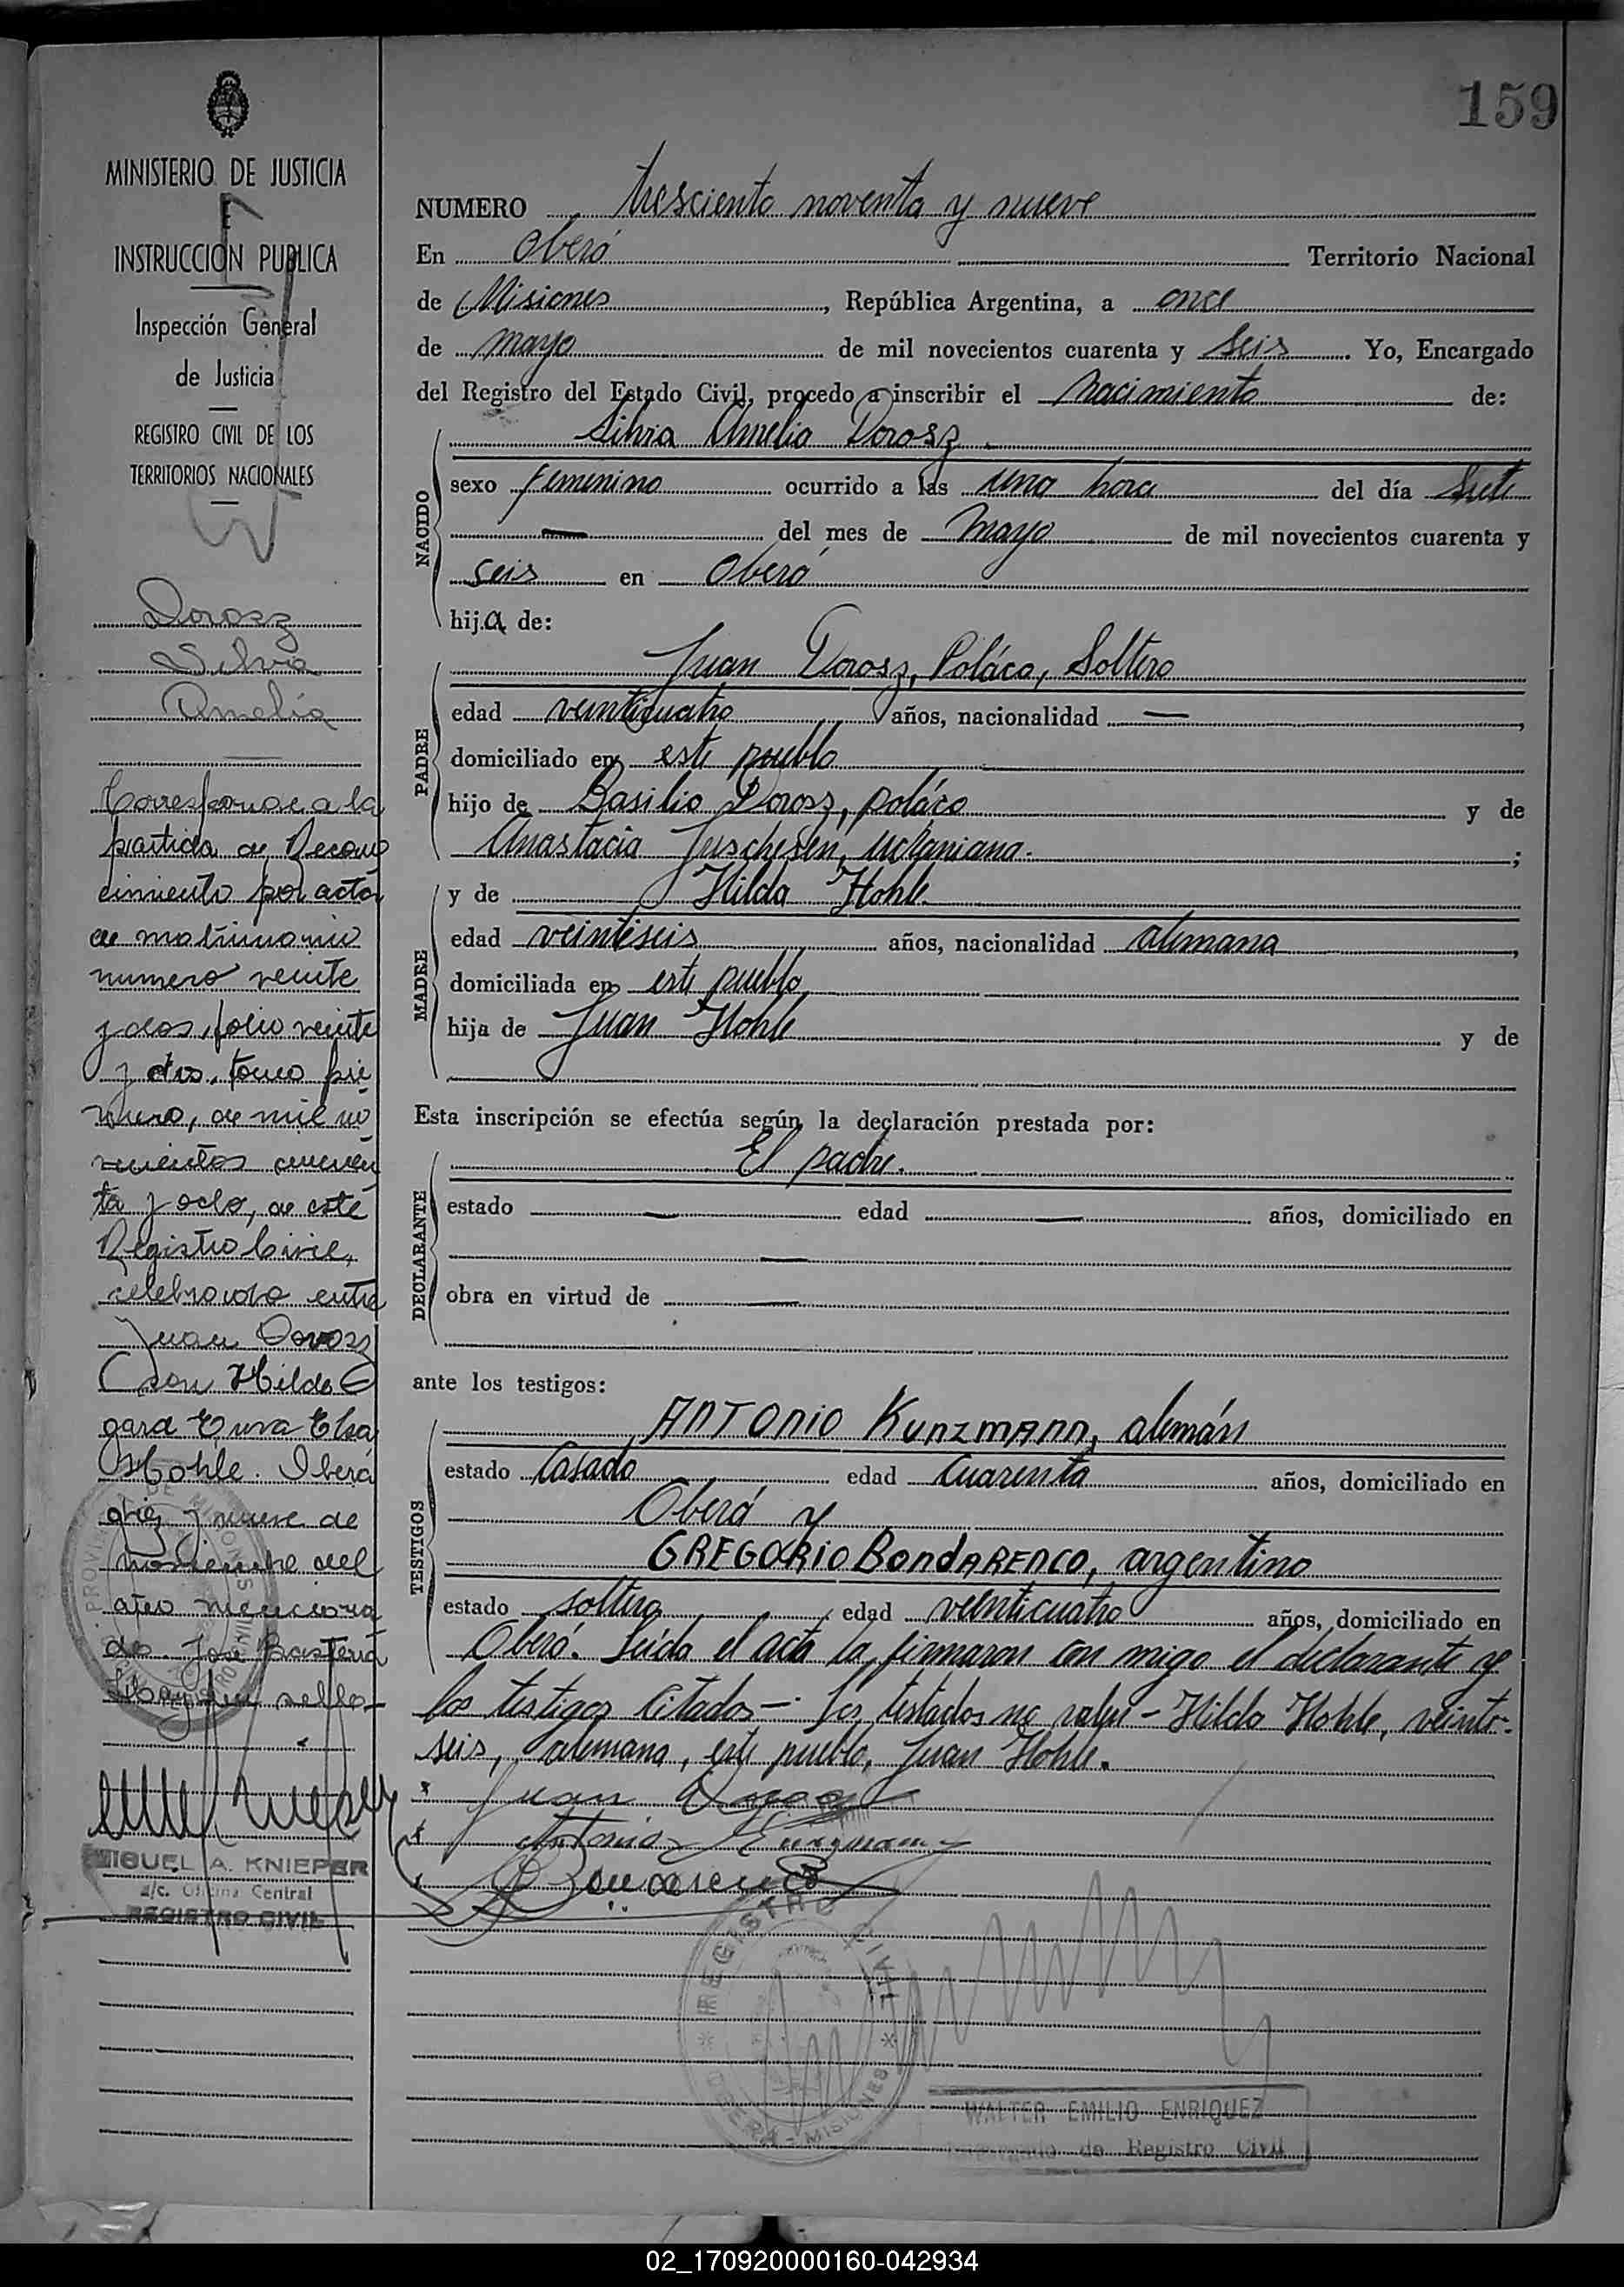 159
MINISTERIO DE JUSTICIA
E
INSTRUCCION PUBLICA
Inspección General
de Justicia
REGISTRO CIVIL DE LOS
TERRITORIOS NACIONALES
Dorosz
Silvia
Amelia
Corresponde a la
partida de Recono
cimiento por acta
de matrimonio
numero veinte
y dos, folio veinte
y dos, tomo pri
mero, de mil no
vecientos cuaren
ta y ocho, de este
Registro Civil,
celebrado entre
Juan Dorosz
con Hilde
gard Erna Elsa
Hohle. Oberá
diez y nueve de
noviembre del
año menciona
do. José Basterra
sello
MIGUEL A. KNIEPER
a/c. Oficina Central
REGISTRO CIVIL
NUMERO tresciento noventa y nueve
En Oberá Territorio Nacional
de Misiones, República Argentina, a once
de mayo de mil novecientos cuarenta y seis. Yo, Encargado
del Registro del Estado Civil, procedo a inscribir el nacimiento de:
NACIDO
Silvia Amelia Dorosz.
sexo femenino ocurrido a las una hora del día siete
— del mes de Mayo de mil novecientos cuarenta y
seis en Oberá
hija de:
PADRE
Juan Dorosz, Poláco, Soltero
edad veinticuatro años, nacionalidad —,
domiciliado en este pueblo
hijo de Basilio Dorosz, poláco y de
Anastacia ucraniana. ;
MADRE
y de Hilda Hohle
edad veintiseis años, nacionalidad alemana,
domiciliada en este pueblo
hija de Juan Hohle y de
Esta inscripción se efectúa según la declaración prestada por:
DECLARANTE
El padre.
estado — edad — años, domiciliado en
—
obra en virtud de —
ante los testigos:
TESTIGOS
ANTONIO KUNZMANN, alemán
estado Casado edad Cuarenta años, domiciliado en
Oberá y
GREGORIO BONDARENCO, argentino
estado soltero edad veinticuatro años, domiciliado en
Oberá. Leída el acta la firmaron con migo el declarante y
los testigos citados —. Los testados no valen - Hilda Hohle, veinti-
seis, alemana, este pueblo, Juan Hohle.
Juan Dorosz
Antonio Kunzmann
Bondarenco
REGISTRO CIVIL
OBERÁ - MISIONES
WALTER EMILIO ENRIQUEZ
Encargado de Registro Civil
02_170920000160-042934